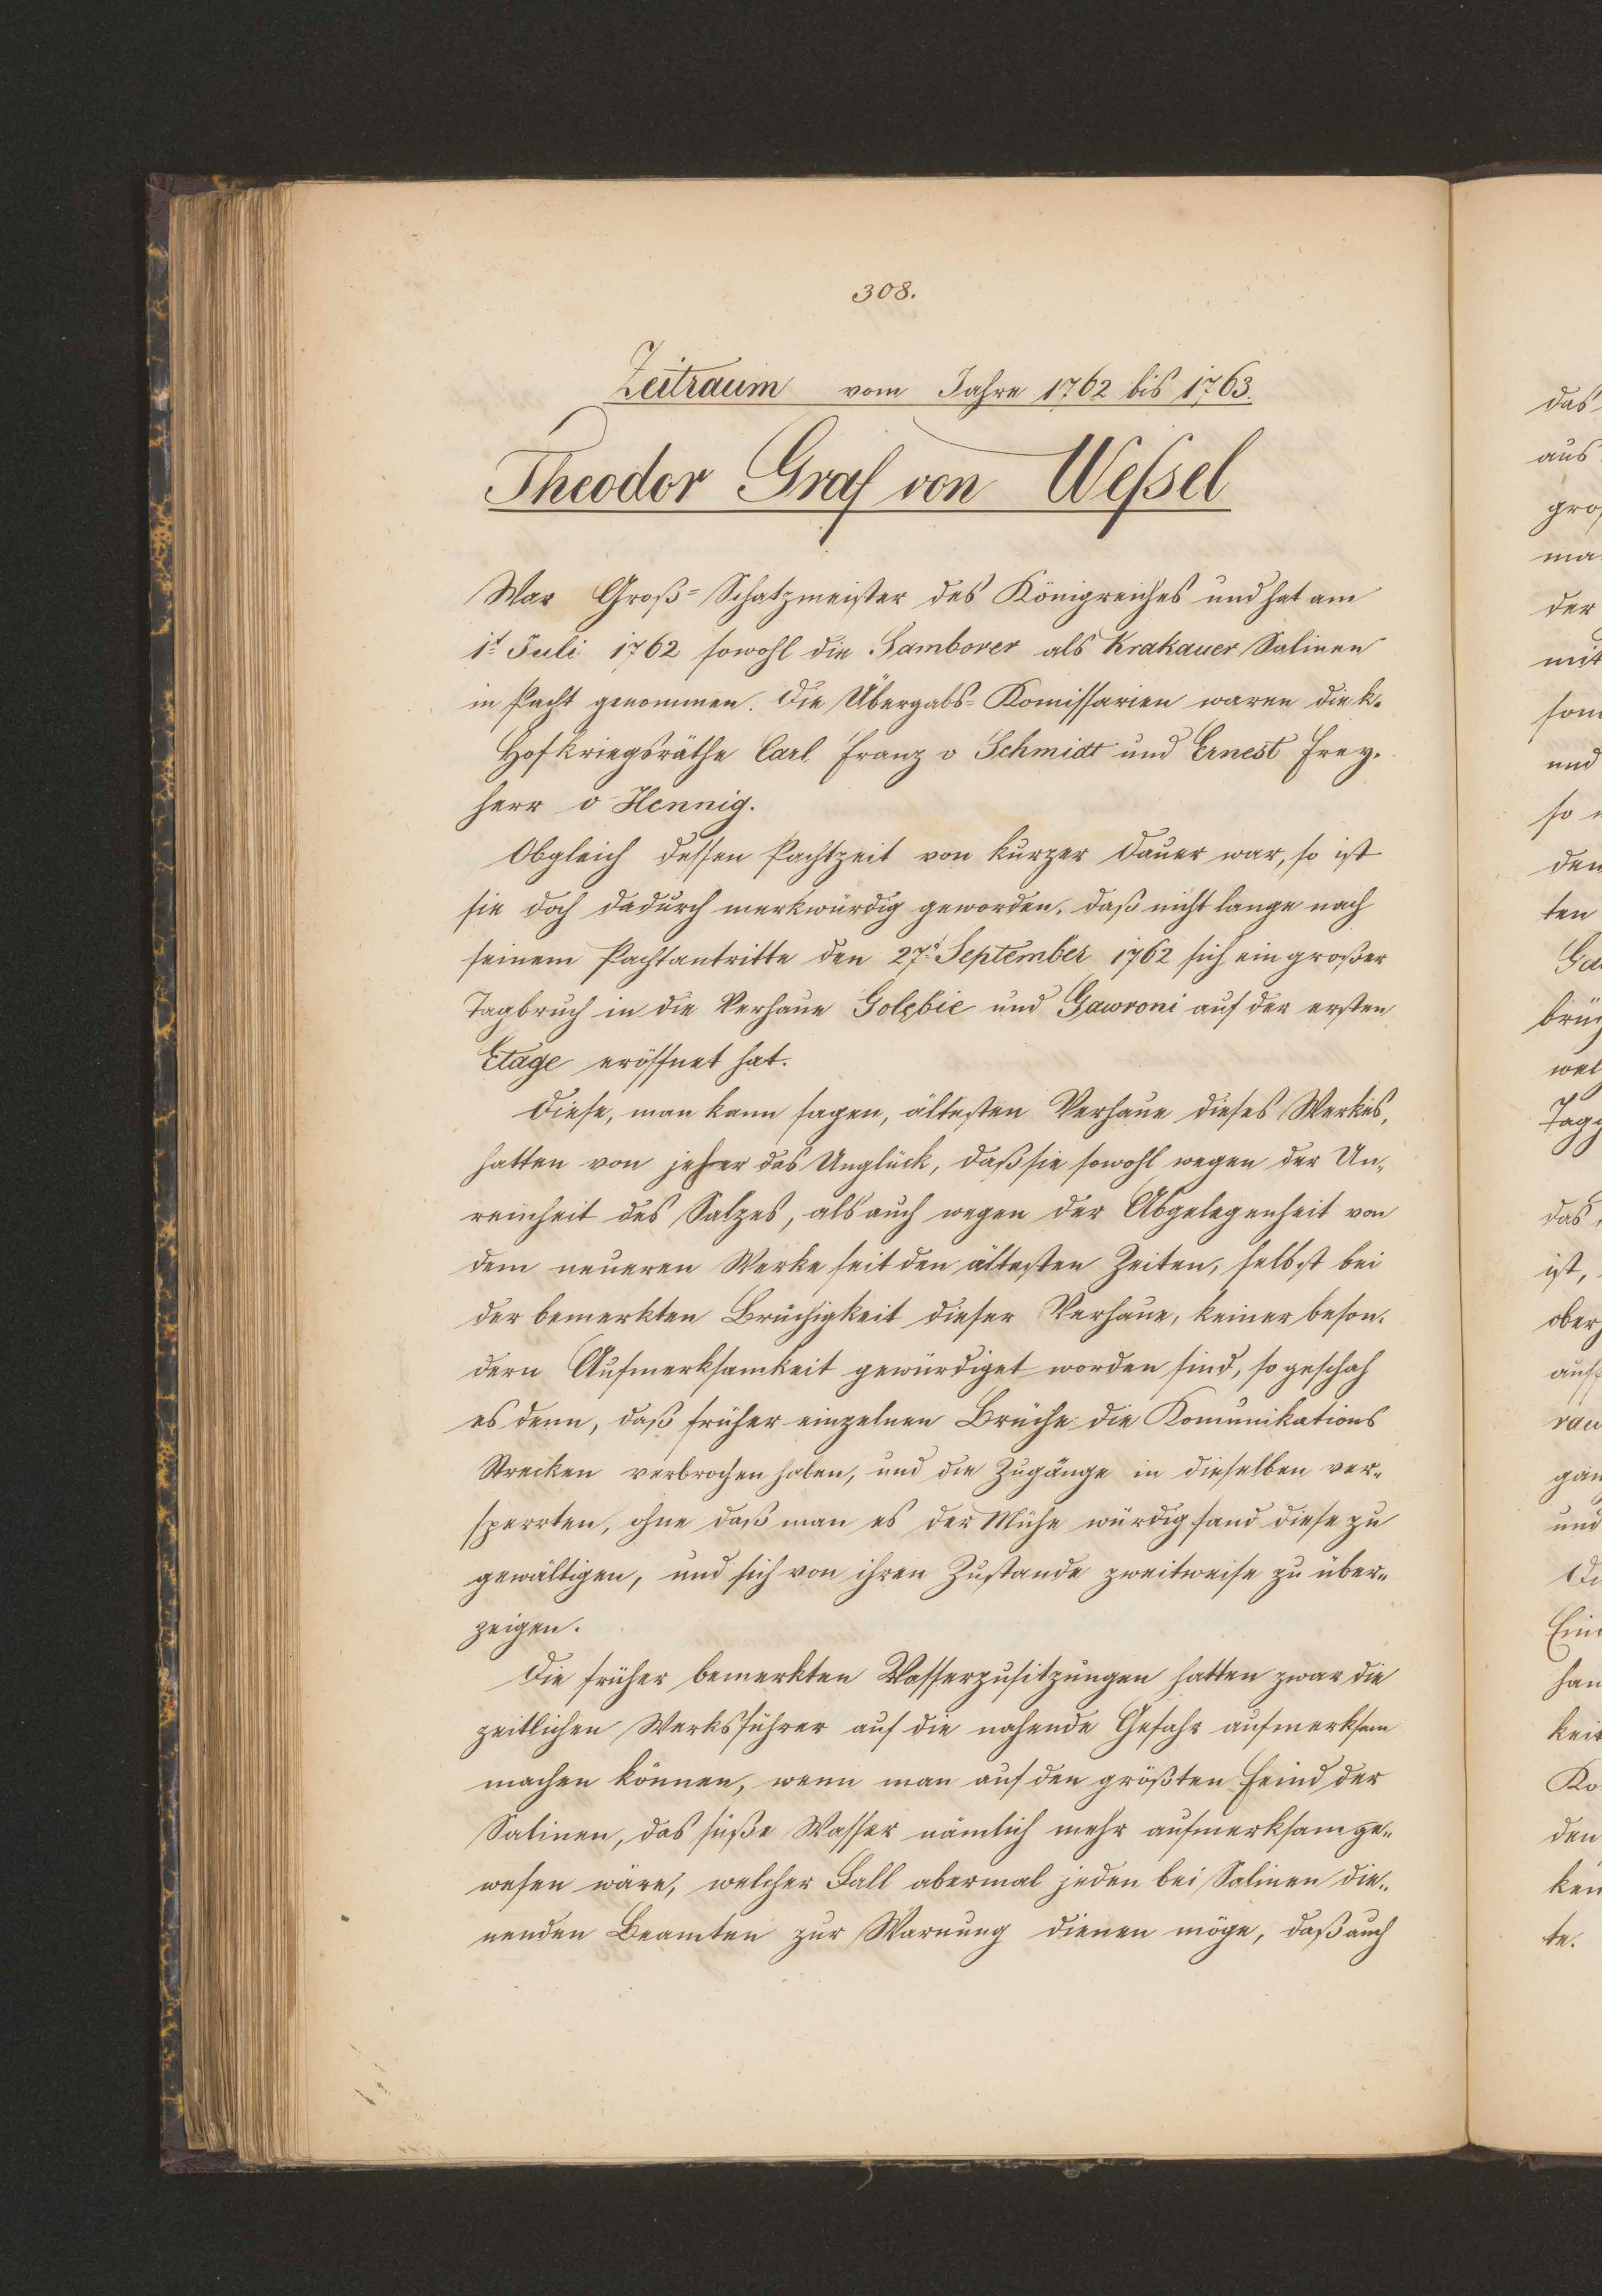 308.
Zeitraum vom Jahre 1762 bis 1763.
Theodor Graf von Weßsel
War Groß-Schatzmeister des Königreiches und hat am
1t Juli 1762 sowohl die Samborer als Krakauer Salinen
in Pacht genommen. Die Übergabs-Komissarien waren die k.
Hofkriegsräthe Carl Franz v Schmidt und Ernest Frey-
herr v Hennig.
Obgleich dessen Pachtzeit von kurzer Dauer war, so ist
sie doch dadurch merkwürdig geworden, daß nicht lange nach
seinem Pachtantritte den 27t September 1762 sich ein großer
Tagbruch in die Verhaue Golębie und Gawroni auf der ersten
Etage eröffnet hat.
Diese, man kann sagen, ältesten Verhaue dieses Werkes,
hatten von jeher das Unglück, daß sie sowohl wegen der Un-
reinheit des Salzes, als auch wegen der Abgelegenheit von
dem neueren Werke seit den ältesten Zeiten, selbst bei
der bemerkten Brüchigkeit dieser Verhaue, keiner beson-
dern Aufmerksamkeit gewürdiget worden sind, so geschah
es denn, daß früher einzelnen Brüche die Komunikations
Strecken verbrochen haben, und die Zugänge in dieselben ver-
sperrten, ohne daß man es der Mühe würdig fand diese zu
gewältigen, und sich von ihren Zustande zweitweise zu über-
zeigen.
Die früher bemerkten Wasserzusitzungen hatten zwar die
zeitlichen Werksführer auf die nahende Gefahr aufmerksam
machen können, wenn man auf den größten Feind der
Salinen, das süße Wasser nämlich mehr aufmerksam ge-
wesen wäre, welcher Fall abermal jeden bei Salinen die-
nenden Beamten zur Warnung dienen möge, daß auch
das
aus
gro
ma
der
mit
son
und
so
den
ten
Ga
brüc
wel
Tag
das
ist,
ober
auf
rau
gän
und
Di
Ein
han
keit
Ko
den
ken
te.